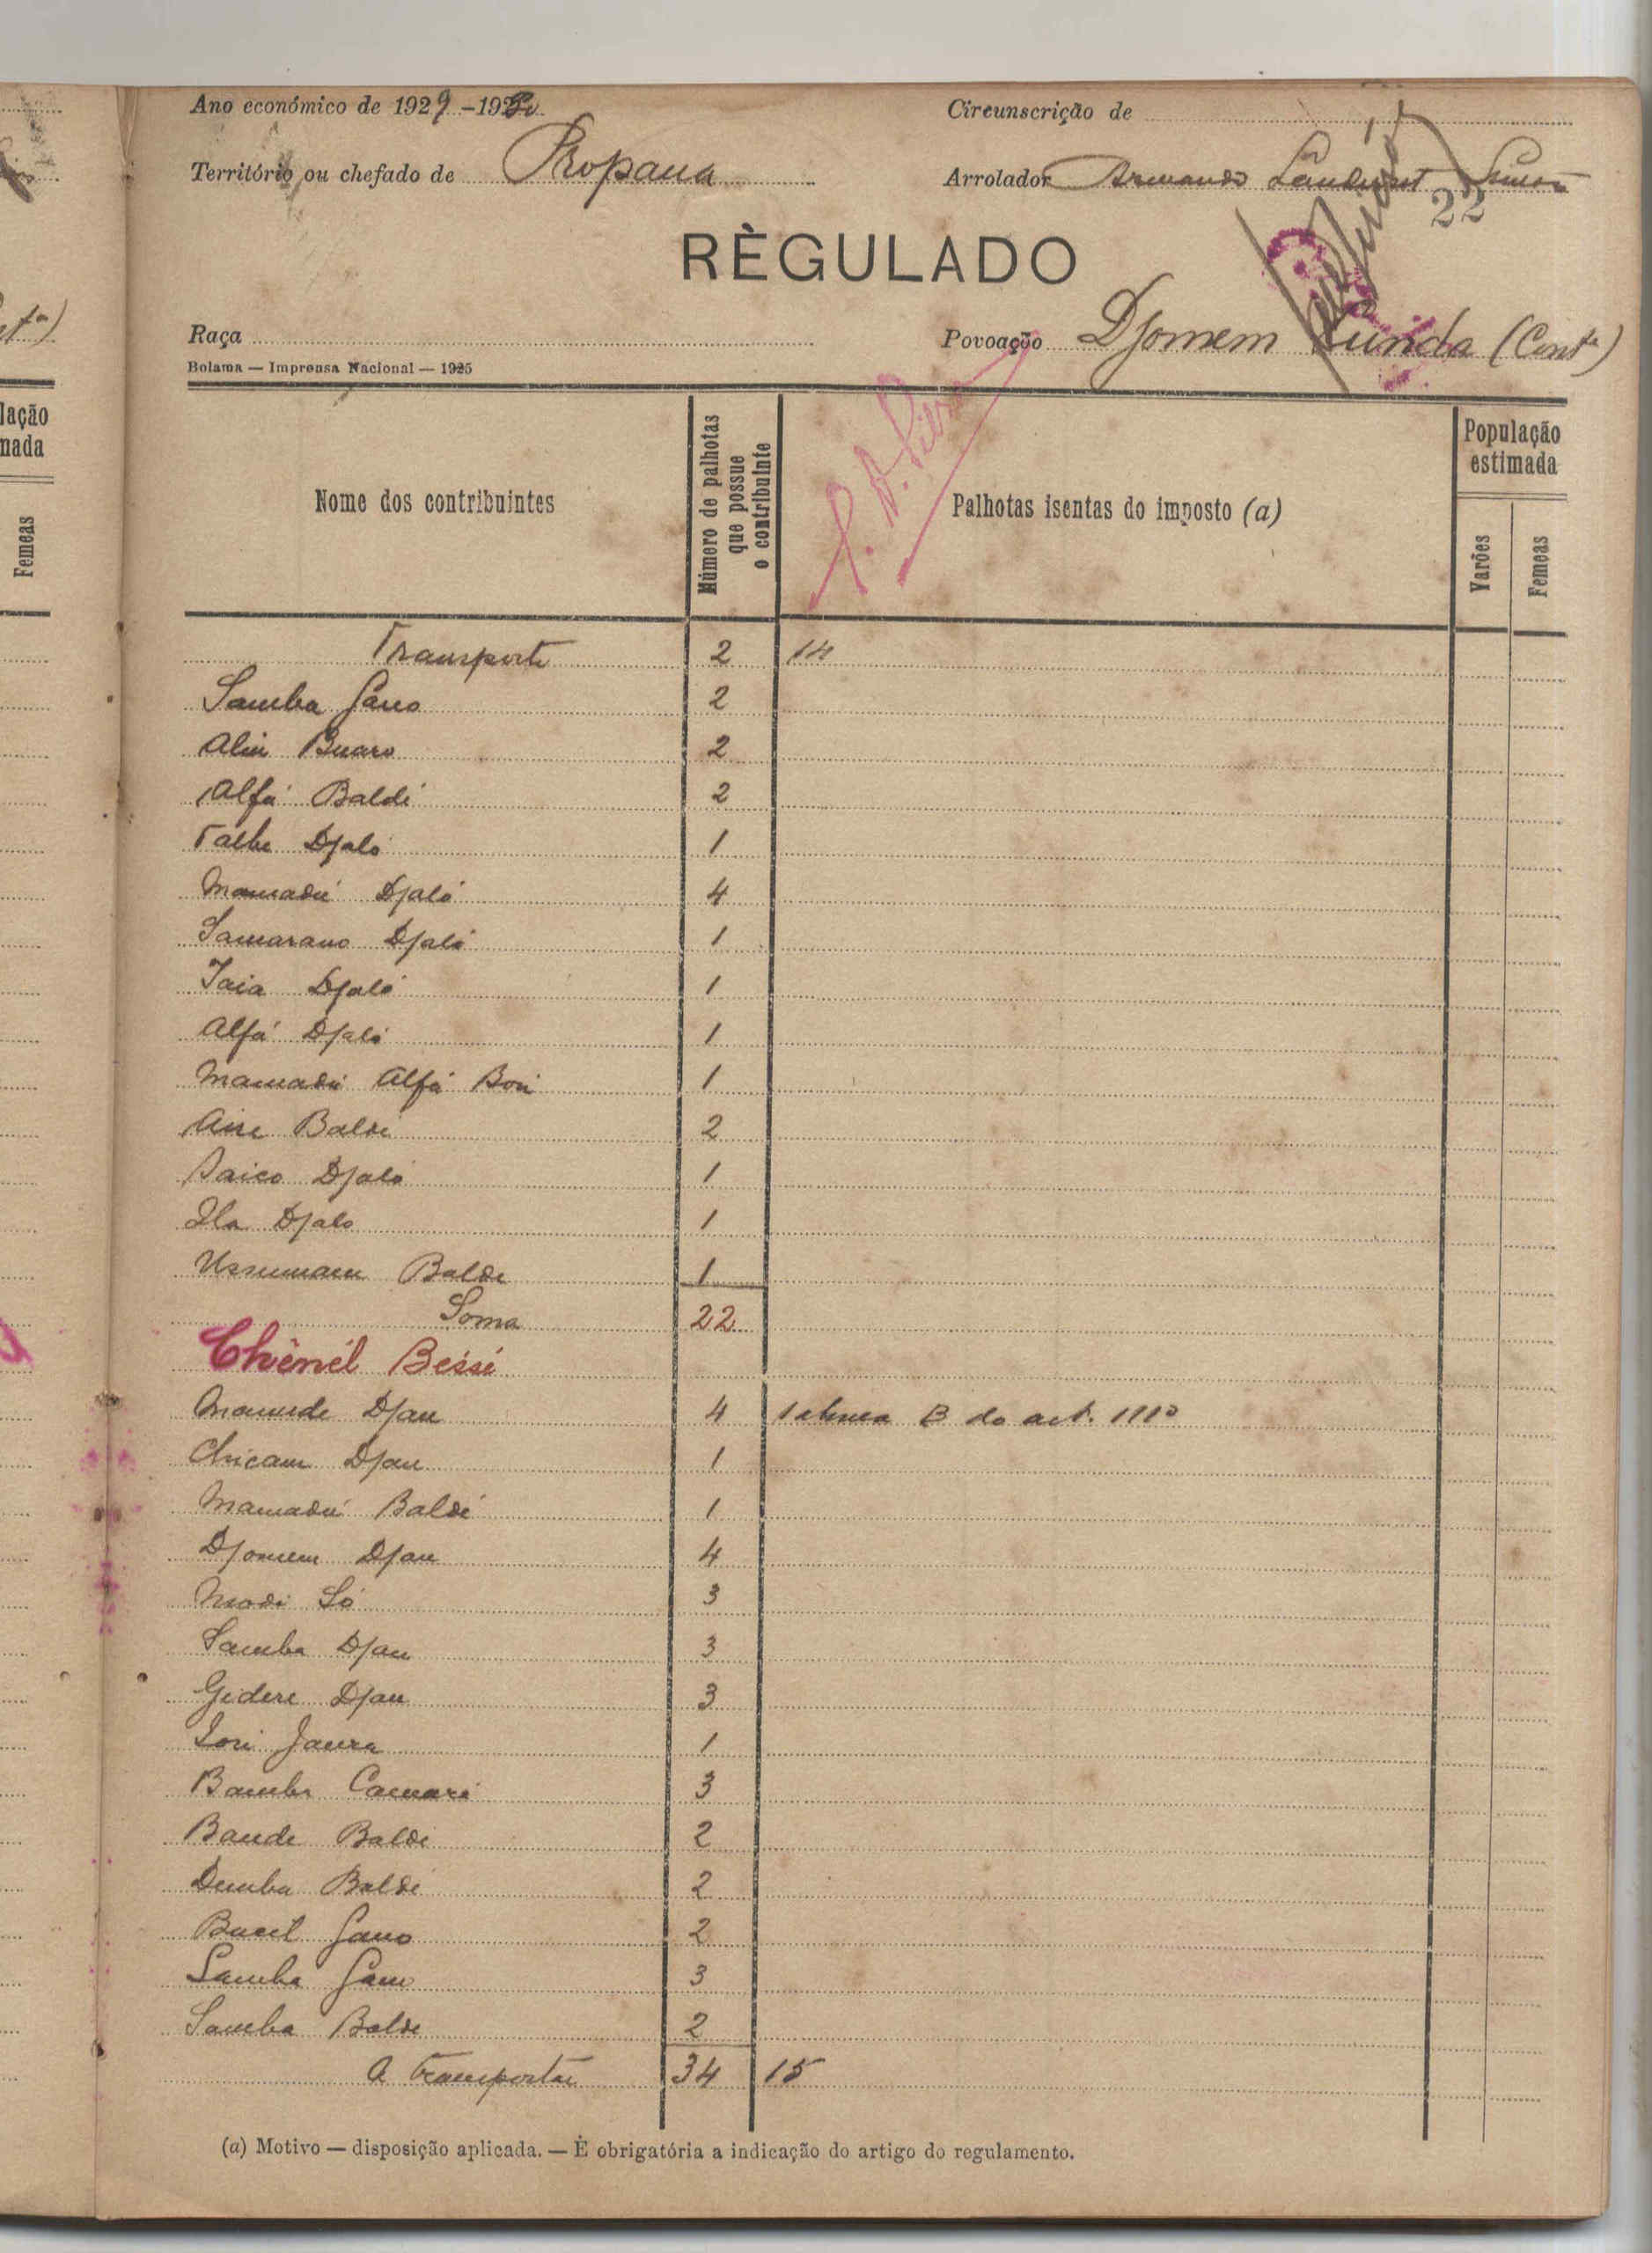 Ano económico de 1929-1930
Circunscrição de
Território ou chefado de Propana
Arrolador Armando
22
RÈGULADO
Raça
Povoação Djomem Cunda (Contª)
Bolama — Imprensa Nacional — 1925
lação
nada
Femeas
Nome dos contribuintes
Número de palhotas
que possue
o contribuinte
Palhotas isentas do imposto (a)
População
estimada
Varões
Femeas
Transporte 2 14
Samba Gano 2
Aliu Buaro 2
Alfá Baldé 2
Talhe Djaló 1
Mamadú Djaló 4
Samarano Djaló 1
Iaia Djaló 1
Alfá Djaló 1
Mamadú Alfá Bori 1
Aire Baldé 2
Saico Djaló 1
Ila Djalo 1
Ussumane Balde 1
Soma 22
Chênél Bessé
Mamude Djau 4 1 alinea B do art. 111º
Chicam Djau 1
Mamadú Baldé 1
Djomem Djau 4
Modi Só 3
Samba Djau 3
Gidere Djau 3
Iori Jaura 1
Bamba Camará 3
Bande Baldé 2
Demba Baldé 2
Bucil Gano 2
Samba Gano 3
Samba Balde 2
A transportar 34 15
(a) Motivo — disposição aplicada. — É obrigatória a indicação do artigo do regulamento.